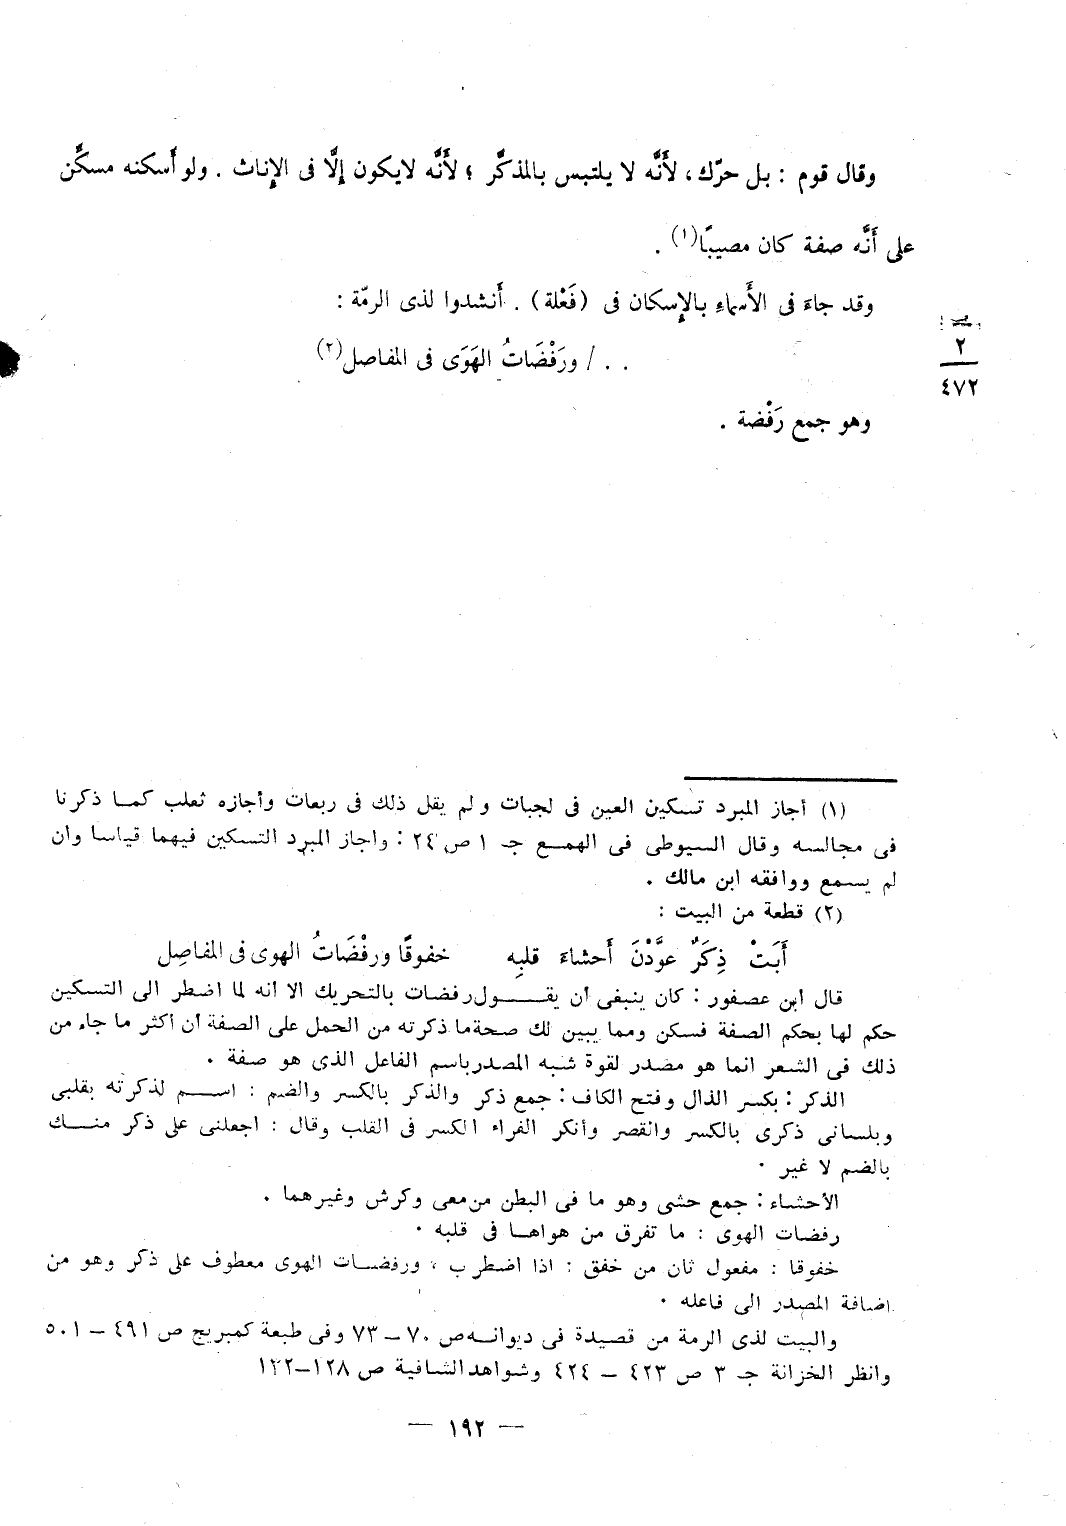 وقال قوم : بل حرّك، لأَنَّه لا يلتبس بالمذكَّر ؛ لأَنَّه لايكون إلَّا فى الإِناث . ولو أَسكنه مسكِّن
على أَنَّه صفة كان مصيبًا(١) .
وقد جاءَ فى الأَسماءِ بالإِسكان فى (فَعْلة) . أَنشدوا لذى الرمّة :
. . / ورَفْضَاتُ الهَوَى فى المفاصل(٢)
٢
٤٧٢
وهو جمع رَفْضة .
(١) أجاز المبرد تسكين العين فى لجبات ولم يقل ذلك فى ربعات وأجازه ثعلب كما ذكرنا
فى مجالسه وقال السيوطى فى الهمع جـ ١ ص ٢٤ : وأجاز المبرد التسكين فيهما قياسا وان
لم يسمع ووافقه ابن مالك .
(٢) قطعة من البيت :
أَبَتْ ذِكَرٌ عوَّدْنَ أَحشاءَ قلبِه خفوقًا ورفْضَاتُ الهوى فى المفاصِل
قال ابن عصفور : كان ينبغى أن يقول رفضات بالتحريك الا أنه لما اضطر الى التسكين
حكم لها بحكم الصفة فسكن ومما يبين لك صحة ما ذكرته من الحمل على الصفة أن أكثر ما جاء من
ذلك فى الشعر انما هو مصدر لقوة شبه المصدر باسم الفاعل الذى هو صفة .
الذكر : بكسر الذال وفتح الكاف : جمع ذكر والذكر بالكسر والضم : اسم لذكرته بقلبى
وبلسانى ذكرى بالكسر والقصر وأنكر الفراء الكسر فى القلب وقال : اجعلنى على ذكر منك
بالضم لا غير .
الأحشاء : جمع حشى وهو ما فى البطن من معى وكرش وغيرهما .
رفضات الهوى : ما تفرق من هواها فى قلبه .
خفوقا : مفعول ثان من خفق : اذا اضطرب ، ورفضات الهوى معطوف على ذكر وهو من
اضافة المصدر الى فاعله .
والبيت لذى الرمة من قصيدة فى ديوانه ص ٧٠ – ٧٣ وفى طبعة كمبريج ص ٤٩١ – ٥٠١
وانظر الخزانة جـ ٣ ص ٤٢٣ – ٤٢٤ وشواهد الشافية ص ١٢٨–١٣٢
— ١٩٢ —